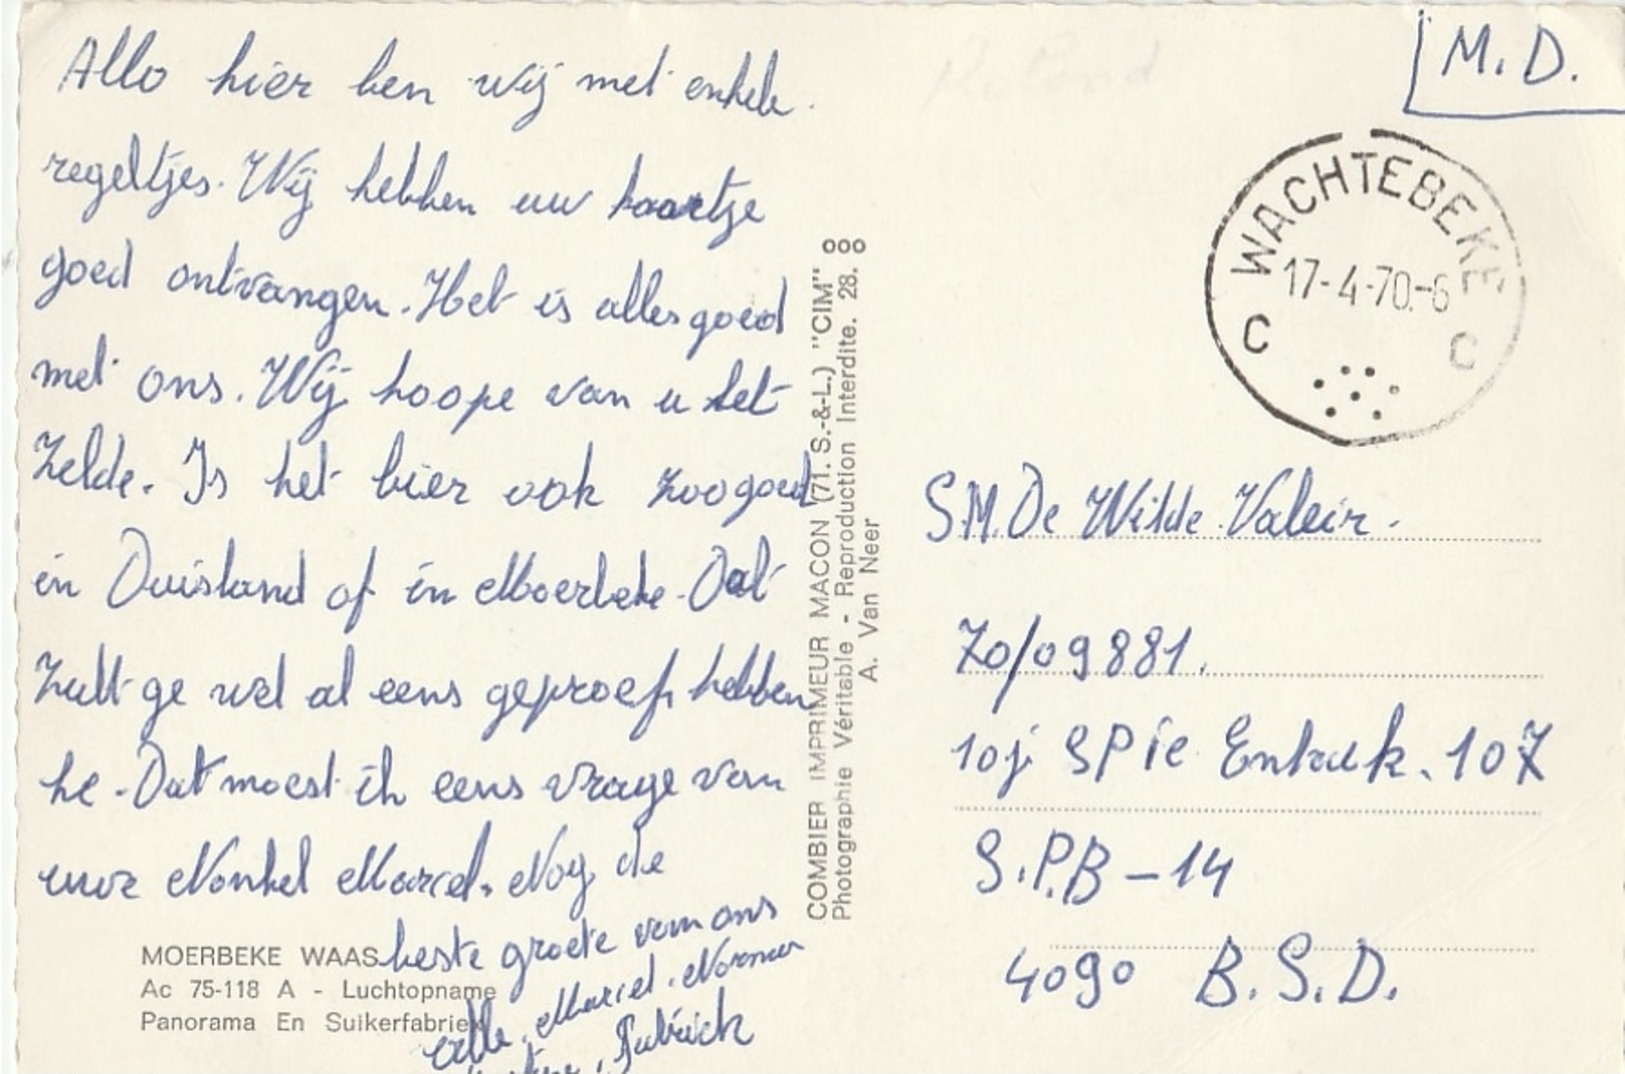 Allo hier ben wij met enkele
regeltjes. Wij hebben uw kaartje
goed ontvangen. Het is alles goed
met ons. Wij hoope van u het
Zelde. Is het bier ook zoogoed
in Duisland of in Moerbeke. Dat
Zult ge wel al eens geproef hebben
he. Dat moest ik eens vrage van
uwe Nonkel Marcel. Nog de
beste groete van ons
alle, Marcel. Norma
Patrick
MOERBEKE WAAS
Ac 75-118 A - Luchtopname
Panorama En Suikerfabriek
COMBIER IMPRIMEUR MACON (71. S.-&-L.) "CIM"
Photographie Véritable - Reproduction Interdite. 28.
A. Van Neer
Roland
M. D.
WACHTEBEKE
17-4-70.-6
C C
S.M. De Wilde Valeir.
70/09881.
10j SPie Entruk. 107
S.P.B - 14
4090 B.S.D.